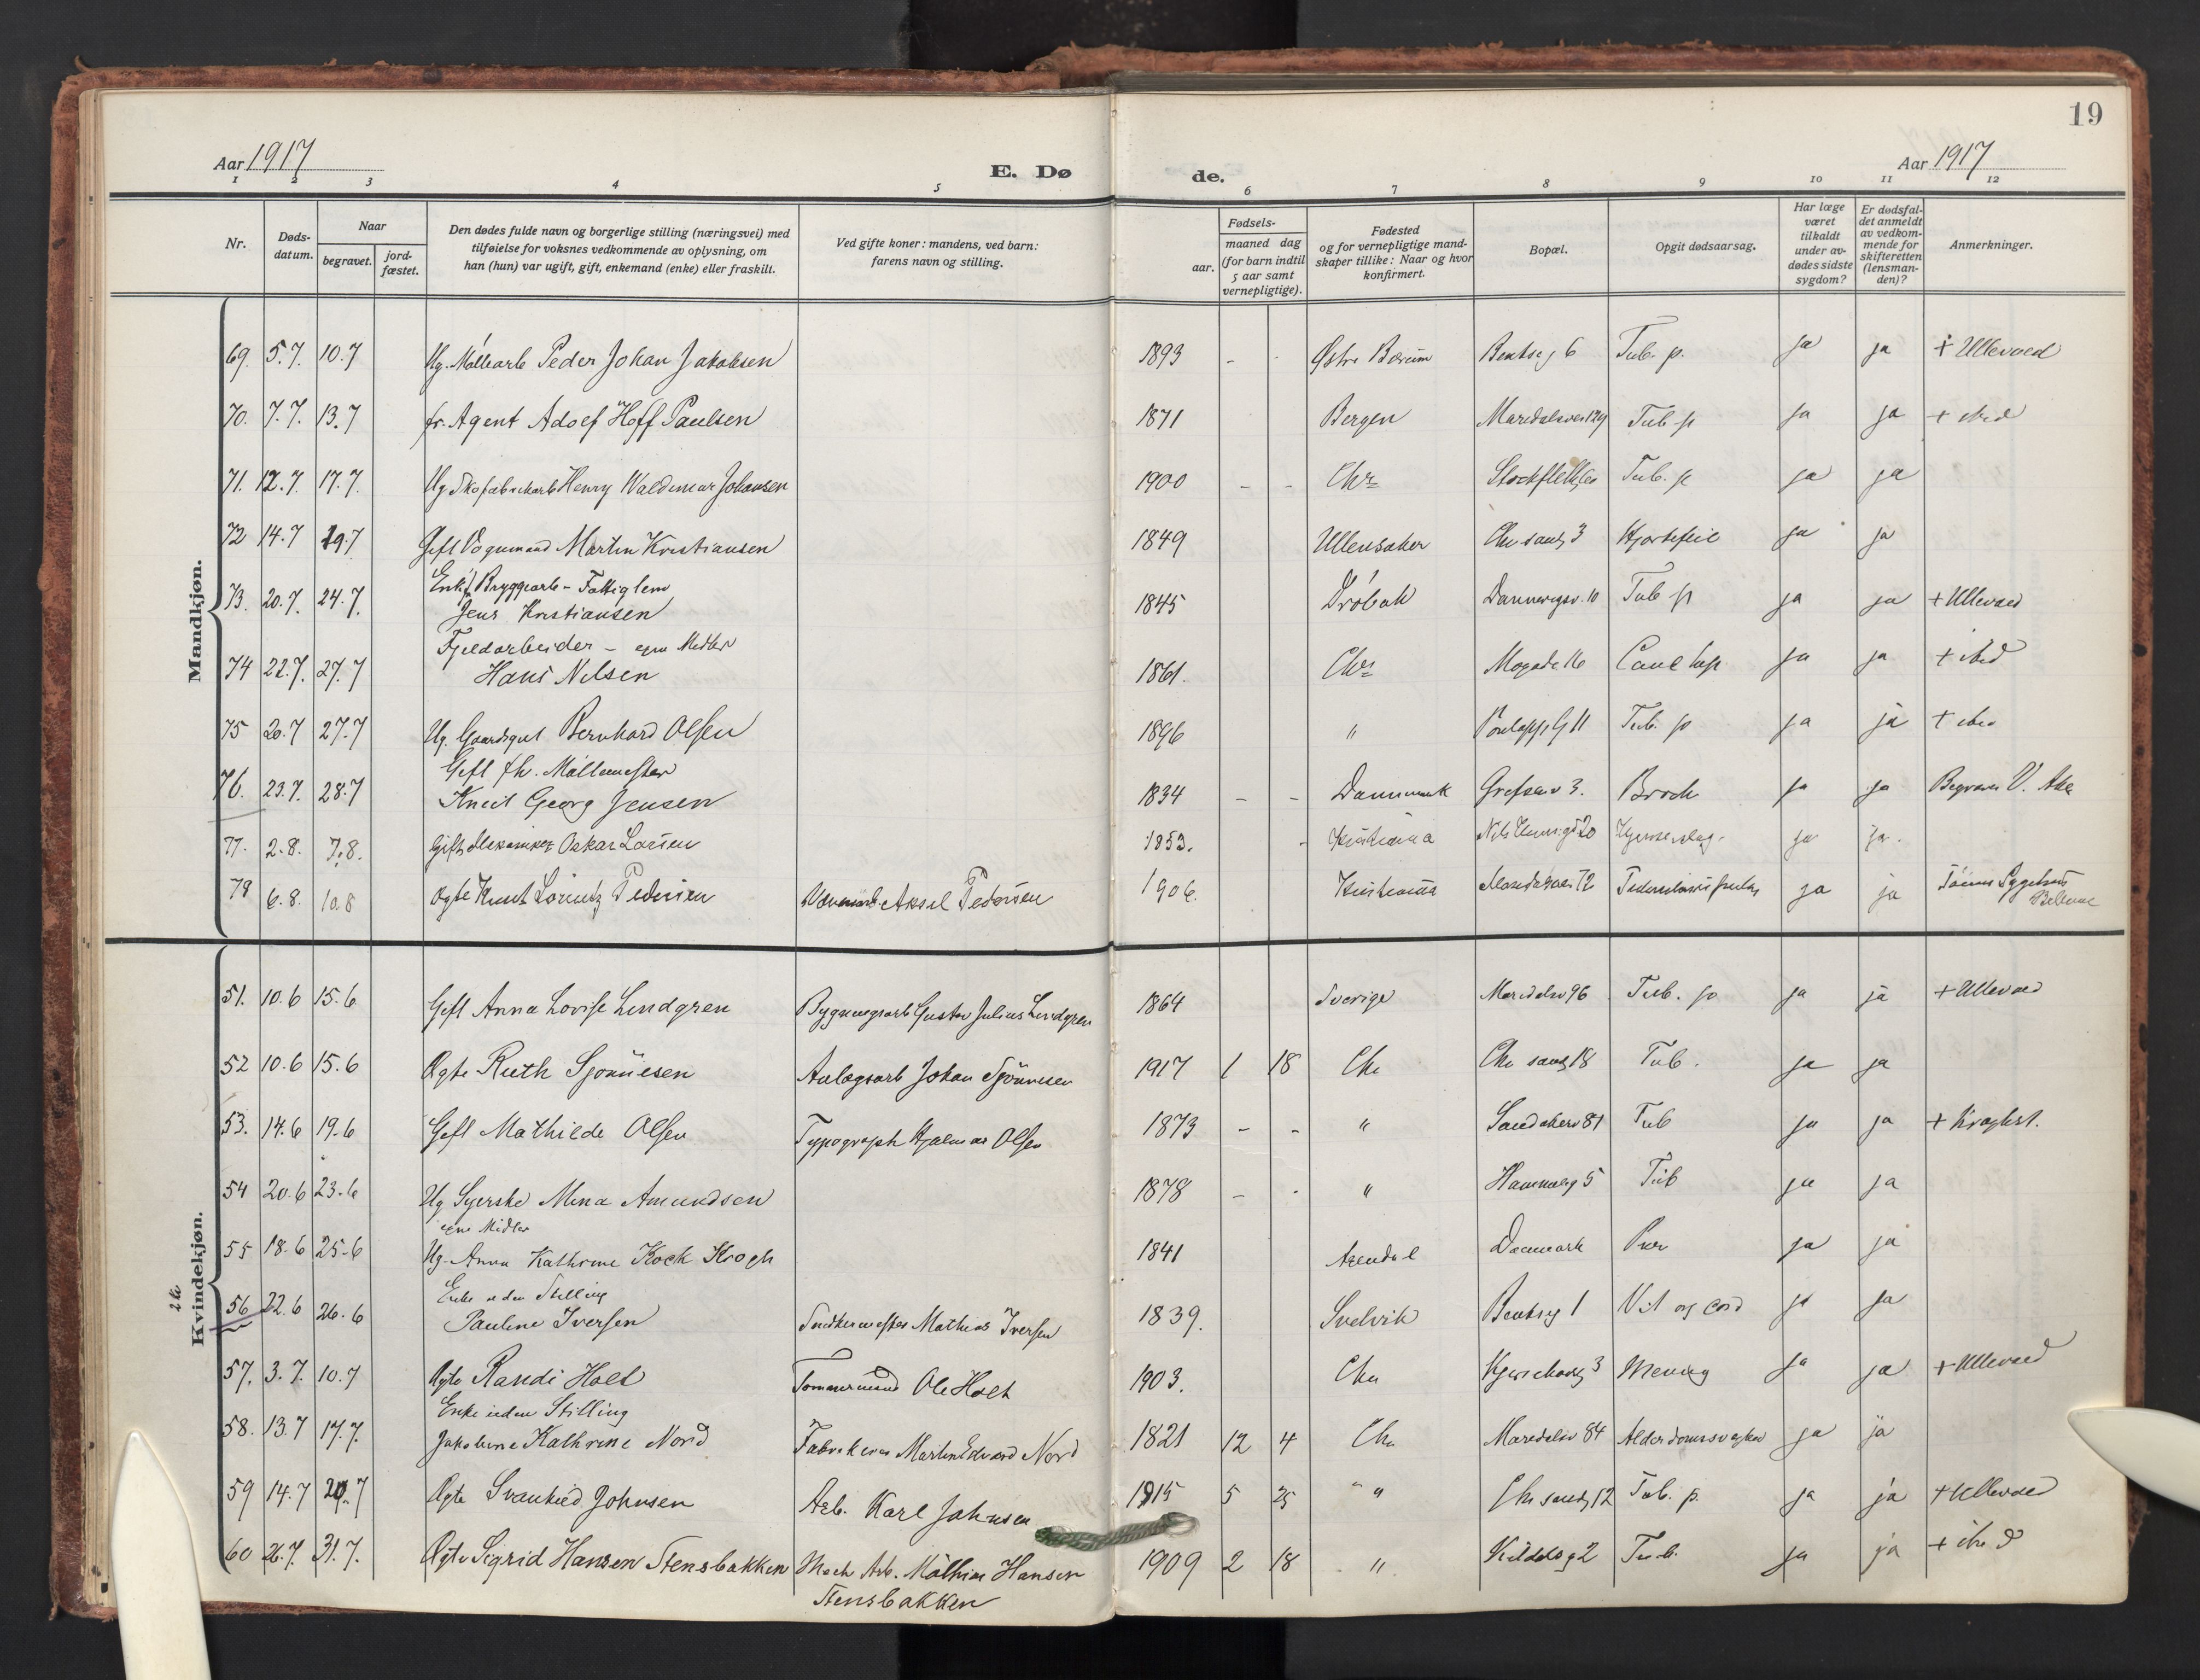 19
Aar 1917
E. Dø
de.
Aar 1917
1 2 3 4 5 6 7 8 9 10 11 12
Nr.
Døds-
datum.
Naar
begravet.
jord-
fæstet.
Den dødes fulde navn og borgerlige stilling (næringsvei) med
tilføielse for voksnes vedkommende av oplysning, om
han (hun) var ugift, gift, enkemand (enke) eller fraskilt.
Ved gifte koner: mandens, ved barn:
farens navn og stilling.
Fødsels-
aar.
maaned dag
(for barn indtil
5 aar samt
vernepligtige).
Fødested
og for vernepligtige mand-
skaper tillike: Naar og hvor
konfirmert.
Bopæl.
Opgit dødsaarsag.
Har læge
været
tilkaldt
under av-
dødes sidste
sygdom?
Er dødsfal-
det anmeldt
av vedkom-
mende for
skifteretten
(lensman-
den)?
Anmerkninger.
Mandkjøn.
69. 5.7. 10.7 Ug. Møllearb Peder Johan Jakobsen 1893 - - Østre Bærum Bentseg 6 Tub. p. ja ja + Ullevaal
70. 7.7. 13.7 fr. Agent Adolf Hoff Paulsen 1871 Bergen Maridalsvei 129 Tub p ja ja + ibid
71. 12.7 17.7. Ug Skofabrikarb Henry Waldemar Johansen 1900 - - Chr Tub. p ja ja
72 14.7 19.7 Gift Vognmand Martin Kristiansen 1849 Ullensaker Chr sandg 3 Hjertefeil ja ja
Enkem. Bryggearb - Fattiglem
73. 20.7. 24.7. Jens Kristiansen 1845 Drøbak Dannevigsv. 10 Tub p ja ja + Ullevaal
Fjeldarbeider - egne Midler
74 22.7. 27.7 Hans Nilsen 1861. Chr Mogata 16 ja ja + ibid
75 20.7 27.7 Ug. Gaardsgut Bernhard Olsen 1896 " Tub. p ja ja + ibid
Gift fh. Møllemester
76. 23.7. 28.7 Georg Jensen 1834 - - Danmark Grefsenv 3. ja ja
77. 2.8. 7.8. Gift Mekaniker Oskar Larsen 1853. - Kristiania 20 ja ja.
78 6.8. 10.8 Ægte Knut Lorentz Pedersen Aksel Pedersen 1906. Kristiania Maridalsvei 72 ja ja
Kvindekjøn.
51. 10.6 15.6 Gift Anna Lovise Lindgren Bygningsarb Gustav Julius Lindgren 1864 Sverige Maridalsv 96 Tub. p ja ja + Ullevaal
52 10.6 15.6 Ægte Ruth Sjønnesen Anlægsarb Johan Sjønnesen 1917 1 18 Chr Chr sandg 18 Tub. ja ja
53. 14.6 19.6 Gift Mathilde Olsen Typograph Hjalmar Olsen 1873 - - " Sandakerv 81 Tub ja ja
54 20.6 23.6 Ug Syerske Mina Amundsen 1878 - - " 5 Tub ja ja
egne Midler
55 18.6 25.6 Ug. Anna Kathrine Kock Krogh 1841 Arendal Danmark ja ja
Enke uden Stilling
56 22.6 26.6 Pauline Iversen Snedkermester Mathias Iversen 1839. Svelvik Bentseg 1 Vit org cord ja ja
57. 3.7. 10.7 Ægte Randi Holt Tømmermand Ole Holt 1903. Chr 3 Mening ja ja + Ullevaal
Enke uden Stilling
58. 13.7 17.7. Jakobine Kathrine Nord Martin Edvard Nord 1821 12 4 Chr Maridalsv 84 Alderdomssvaghet ja ja
59 14.7 20.7 Ægte Svanhild Johnsen Arb. Karl Johnsen 1915 5 25 " Chr sandg 12 Tub. p. ja ja + Ullevaal
60 26.7. 31.7. Ægte Sigrid Hansen Stensbakken Mach Arb. Mathias Hansen 1909 2 18 " 2 Tub. ja ja + ibid
Stensbakken